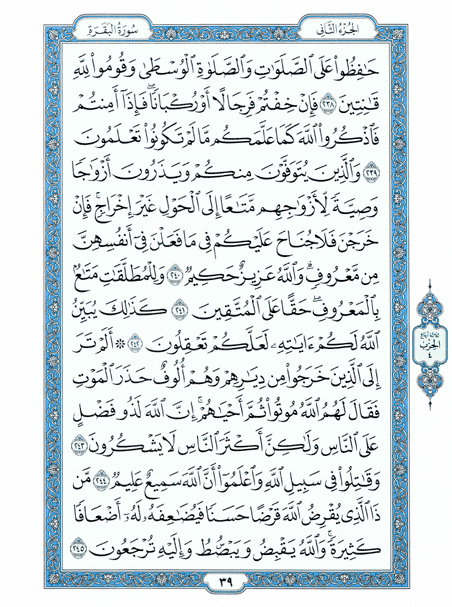 سُورَةُ البَقَرَةِ
الجُزءُ الثَّانِي
حَٰفِظُواْ عَلَى ٱلصَّلَوَٰتِ وَٱلصَّلَوٰةِ ٱلۡوُسۡطَىٰ وَقُومُواْ لِلَّهِ
قَٰنِتِينَ ٢٣٨ فَإِنۡ خِفۡتُمۡ فَرِجَالًا أَوۡ رُكۡبَانٗاۖ فَإِذَآ أَمِنتُمۡ
فَٱذۡكُرُواْ ٱللَّهَ كَمَا عَلَّمَكُم مَّا لَمۡ تَكُونُواْ تَعۡلَمُونَ
٢٣٩ وَٱلَّذِينَ يُتَوَفَّوۡنَ مِنكُمۡ وَيَذَرُونَ أَزۡوَٰجٗا
وَصِيَّةٗ لِّأَزۡوَٰجِهِم مَّتَٰعًا إِلَى ٱلۡحَوۡلِ غَيۡرَ إِخۡرَاجٖۚ فَإِنۡ
خَرَجۡنَ فَلَا جُنَاحَ عَلَيۡكُمۡ فِي مَا فَعَلۡنَ فِيٓ أَنفُسِهِنَّ
مِن مَّعۡرُوفٖۗ وَٱللَّهُ عَزِيزٌ حَكِيمٞ ٢٤٠ وَلِلۡمُطَلَّقَٰتِ مَتَٰعُۢ
بِٱلۡمَعۡرُوفِۖ حَقًّا عَلَى ٱلۡمُتَّقِينَ ٢٤١ كَذَٰلِكَ يُبَيِّنُ
ٱللَّهُ لَكُمۡ ءَايَٰتِهِۦ لَعَلَّكُمۡ تَعۡقِلُونَ ٢٤٢ ۞ أَلَمۡ تَرَ
إِلَى ٱلَّذِينَ خَرَجُواْ مِن دِيَٰرِهِمۡ وَهُمۡ أُلُوفٌ حَذَرَ ٱلۡمَوۡتِ
فَقَالَ لَهُمُ ٱللَّهُ مُوتُواْ ثُمَّ أَحۡيَٰهُمۡۚ إِنَّ ٱللَّهَ لَذُو فَضۡلٍ
عَلَى ٱلنَّاسِ وَلَٰكِنَّ أَكۡثَرَ ٱلنَّاسِ لَا يَشۡكُرُونَ ٢٤٣
وَقَٰتِلُواْ فِي سَبِيلِ ٱللَّهِ وَٱعۡلَمُوٓاْ أَنَّ ٱللَّهَ سَمِيعٌ عَلِيمٞ ٢٤٤ مَّن
ذَا ٱلَّذِي يُقۡرِضُ ٱللَّهَ قَرۡضًا حَسَنٗا فَيُضَٰعِفَهُۥ لَهُۥٓ أَضۡعَافٗا
كَثِيرَةٗۚ وَٱللَّهُ يَقۡبِضُ وَيَبۡصُۜطُ وَإِلَيۡهِ تُرۡجَعُونَ ٢٤٥
الحِزْب
٤
٣٩